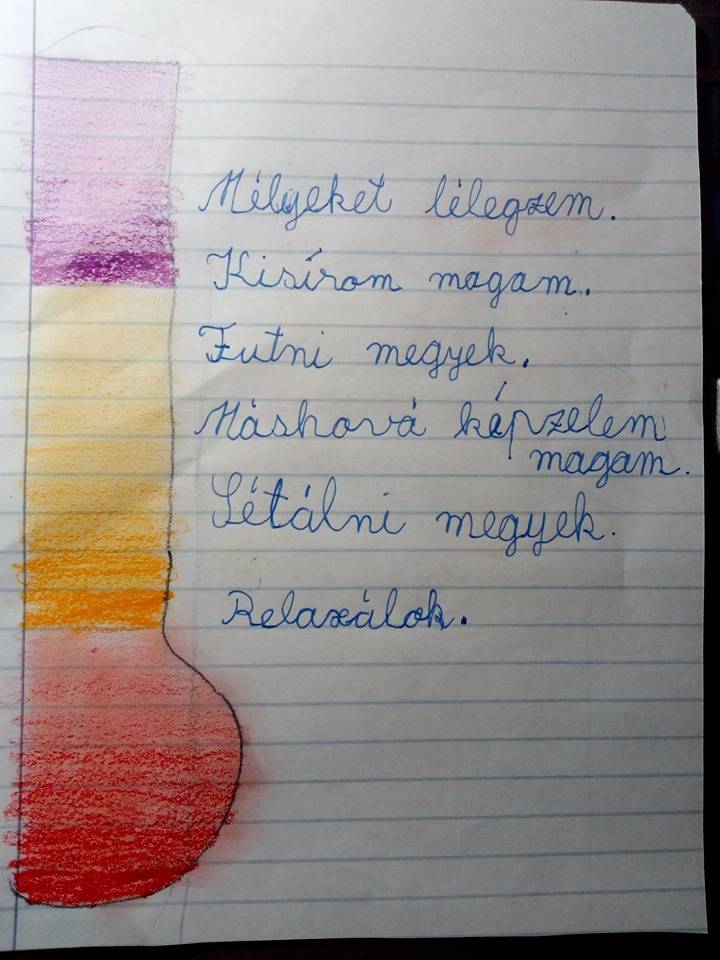 Mélyeket lélegzem.
Kisírom magam.
Futni megyek.
Máshová képzelem
magam.
Sétálni megyek.
Relaxálok.